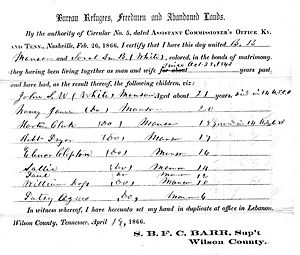 Bureau Refugees, Freedmen and Abandoned Lands.
By the authority of Circular No. 5, dated ASSISTANT COMMISSIONER'S OFFICE, KY.
AND TENN., Nashville, Feb. 26, 1866, I certify that I have this day united B. B.
Manson and Sarah Ann B. (White), colored, in the bonds of matrimony.
they having been living together as man and wife for about since Oct 28, 1843 years past
and have had, as the result thereof, the following children, viz:
John S. W. (White) Manson Aged about 21 years, in 14
Nancy Jane (Do) Manson 20
Martin Clark (Do) Manson
(Do) Manson 17
(Do) Manson 14
Sallie (Do) Manson 14
(Do) Manson 12
William (Do) Manson 10
(Do) Manson 4
In witness whereof, I have hereunto set my hand in duplicate at office in Lebanon,
Wilson County, Tennessee, April 19, 1866.
S. B. F. C. BARR, Sup't
Wilson County.